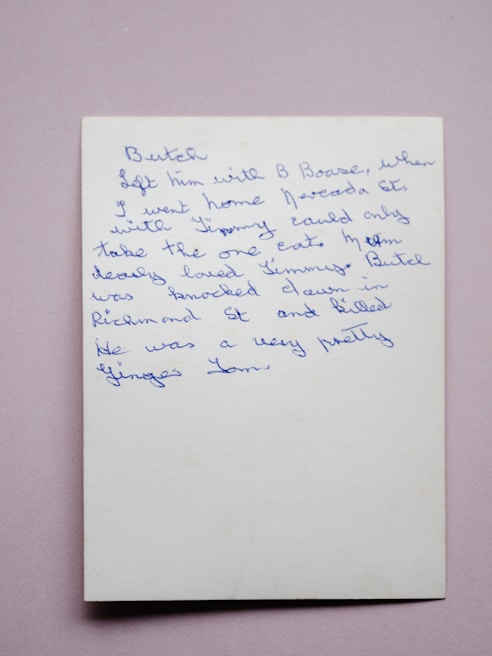 Butch
Left him with B Boase, when
I went home Nevada St.
with Timmy could only
take the one cat. Mum
dearly loved Timmy. Butch
was knocked down in
Richmond St and killed
He was a very pretty
Ginger Tom.